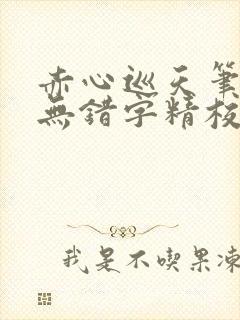 赤心巡天筆
無錯字精校
我是不喫果凍